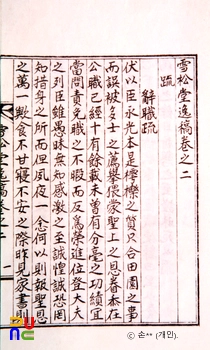 雪松堂逸稿卷之二
疏
辭職疏
伏以臣永光本是樗櫟之質只合田園之事
而誤被多士之薦擧猥蒙聖上之恩眷忝在
公職已經十有餘載未曾有分毫之功績宜
當問責免職之不暇而反爲榮進位登大夫
之列臣雖愚昧無知感激之至誠惶誠恐罔
知措身之所而但夙夜一念何以則報聖恩
之萬一歟食不甘寢不安之際昨見家書則
雪松堂逸稿卷之二
© 손** (개인).